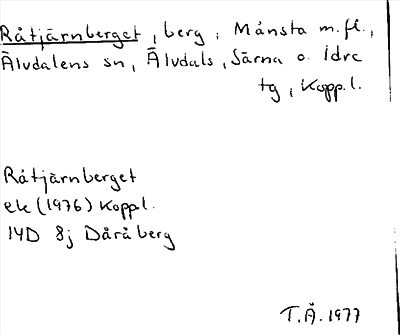 Råtjärnberget, berg, Månsta m.fl.,
Älvdalens sn, Älvdals, Särna o. Idre
tg, Koppl.
Råtjärnberget
ek (1976) Koppl.
14D 8j Dåråberg
T.Å. 1977